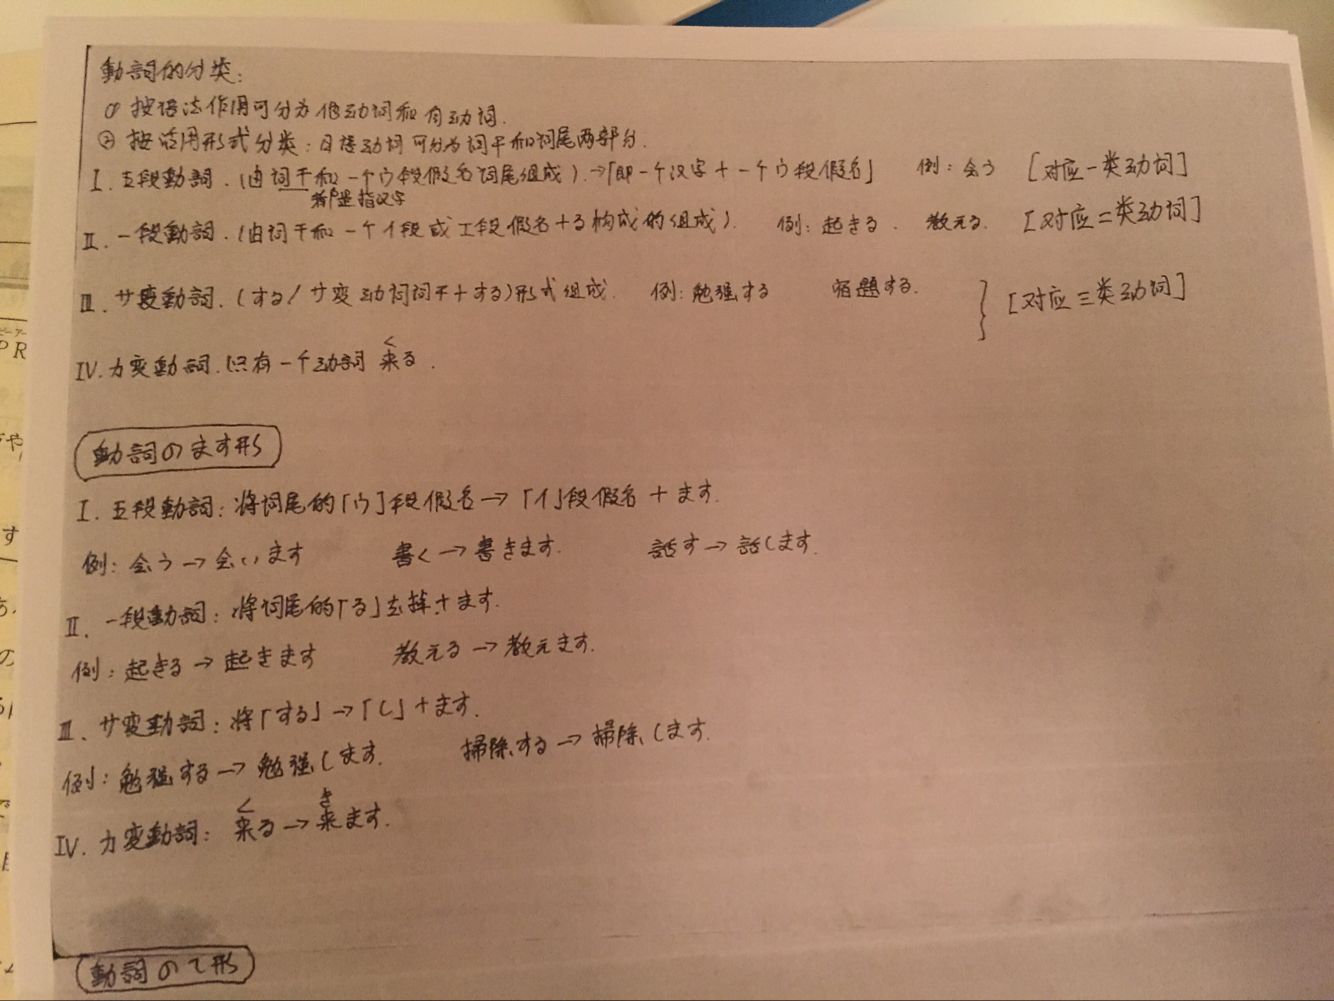 動詞的分类:
① 按语法作用可分为他动词和自动词.
② 按活用形式分类:日语动词可分为词干和词尾两部分.
I. 五段動詞.(由词干和一个ウ段假名词尾组成).→「即一个汉字+一个ウ段假名」 例:会う [对应一类动词]
II. 一段動詞.(由词干和一个イ段或エ段假名+る构成的组成). 例:起きる. 教える. [对应二类动词]
III. サ変動詞.(する/サ变动词词干+する)形式组成. 例:勉强する 宿題する. [对应三类动词]
IV. カ変動詞.只有一个动詞 来る.
く
動詞のます形
I. 五段動詞:将词尾的「ウ」段假名→「イ」段假名+ます.
例:会う→会います 書く→書きます. 話す→話します.
II. 一段動詞:将词尾的「る」去掉+ます.
例:起きる→起きます 教える→教えます.
III. サ変動詞:将「する」→「し」+ます.
例:勉强する→勉强します. 掃除する→掃除します.
く き
IV. カ変動詞:来る→来ます.
動詞のて形
PR